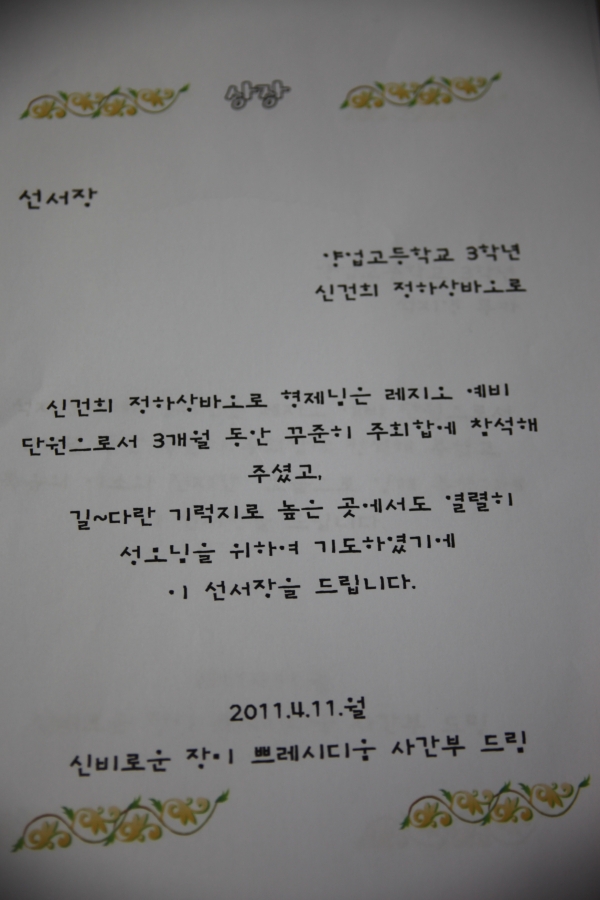 상장
선서장
양업고등학교 3학년
신건희 정하상바오로
신건희 정하상바오로 형제님은 레지오 예비
단원으로서 3개월 동안 꾸준히 주회합에 참석해
주셨고,
길~다란 기럭지로 높은 곳에서도 열렬히
성모님을 위하여 기도하였기에
이 선서장을 드립니다.
2011.4.11.월
신비로운 장미 쁘레시디움 사간부 드림